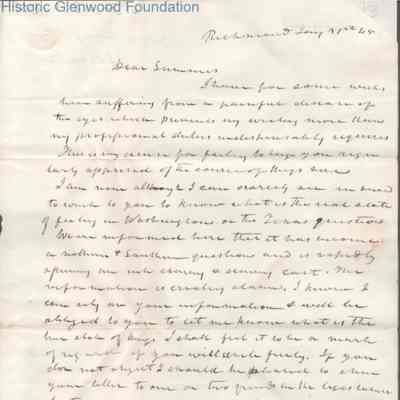 Historic Glenwood Foundation
Richmond Jany 45
Dear Summers
I have for some weeks
been suffering from a painful disease of
the eyes which prevents my writing more than
my professional duties indispensably requires
This is my excuse for failing to keep you regu
larly apprised of the course of things here
I am now although I can scarcely see induced
to write to you to know what is the real state
of feeling in Washington on the Texas question
We are informed here that it has become
a northern & Southern question and is rapidly
The
information is creating alarm. I know I
can rely on your information & will be
obliged to you to let me know what is the
true state of things I shall feel it to be a mark
of regard if you will write freely. If you
do not object I should be pleased to show
your letter to one or two friends in the Legislature